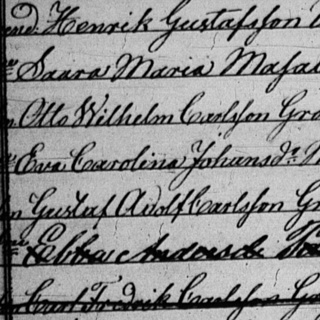 Henrik Gustafsson
Saara Maria Masal
Otto Wilhelm Carlsson Gra
Eva Carolina Johansdr
Gustaf Adolf Carlsson Gr
Ebba
Carl Fredrik Carlsson